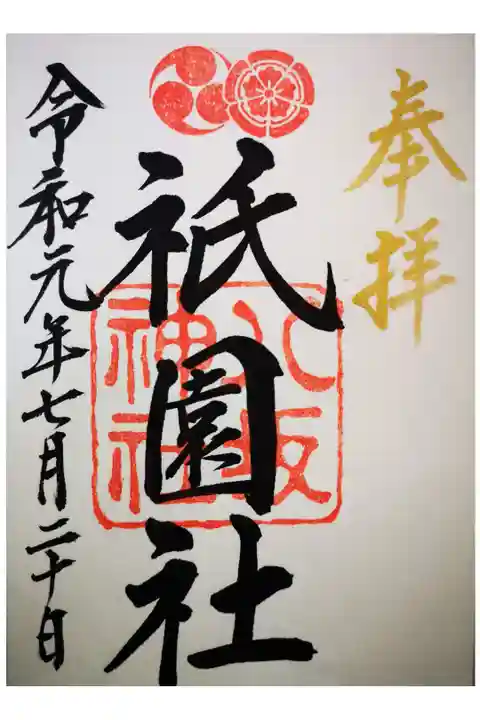 奉拝
祇園社
八坂
神社
令和元年七月二十日